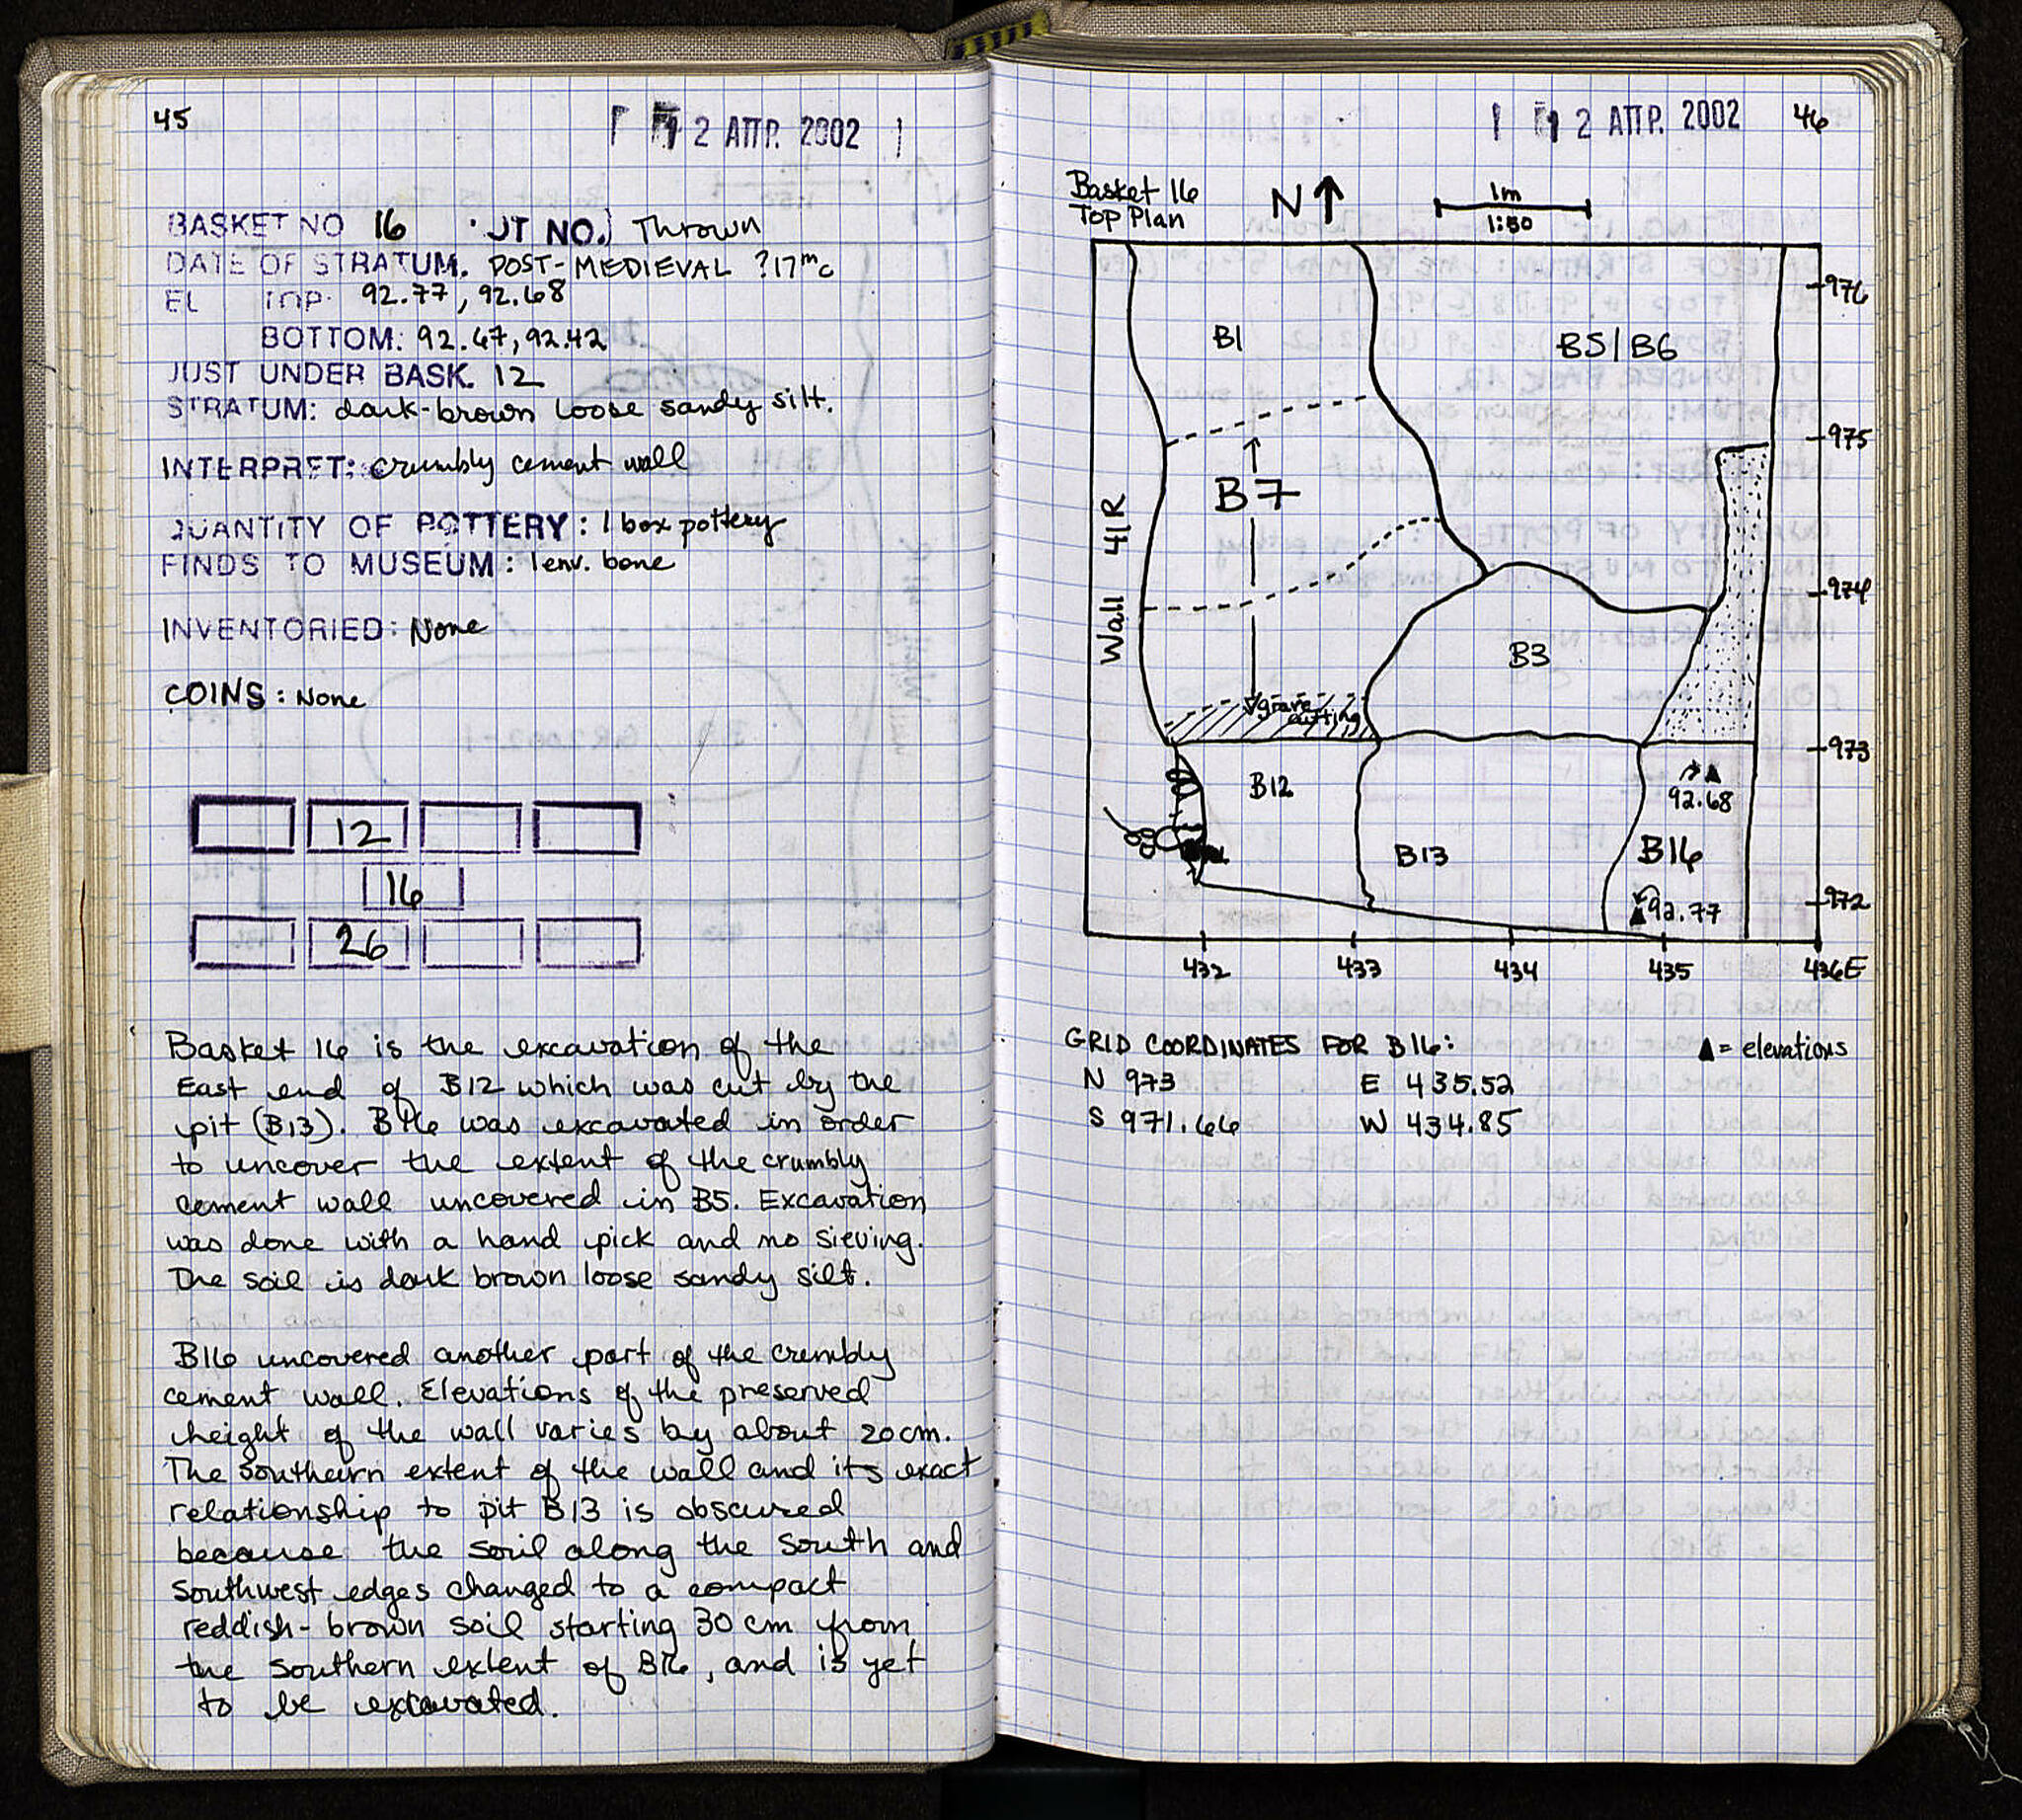 45
12 ΑΠΡ. 2002
BASKET NO 16 UT NO. Thrown
DATE OF STRATUM. POST-MEDIEVAL ?17mc
EL TOP 92.77, 92.68
BOTTOM: 92.67, 92.42
JUST UNDER BASK. 12
STRATUM: dark-brown loose sandy silt.
INTERPRET: crumbly cement wall
QUANTITY OF POTTERY: 1 box pottery
FINDS TO MUSEUM: 1 env. bone
INVENTORIED: None
COINS: None
12
16
26
Basket 16 is the excavation of the
East end of B12 which was cut by the
pit (B13). B16 was excavated in order
to uncover the extent of the crumbly
cement wall uncovered in B5. Excavation
was done with a hand pick and no sieving.
The soil is dark brown loose sandy silt.
B16 uncovered another part of the crembly
cement wall. Elevations of the preserved
height of the wall varies by about 20cm.
The southern extent of the wall and its exact
relationship to pit B13 is obscured
because the soil along the south and
southwest edges changed to a compact
reddish-brown soil starting 30 cm from
the southern extent of B16, and is yet
to be excavated.
12 ΑΠΡ. 2002
46
Basket 16
Top Plan
N
1m
1:50
976
B1
B5/B6
975
B7
Wall 41R
974
B3
grave
cutting
973
B12
92.68
B13
B16
92.77
972
432
433
434
435
436E
GRID COORDINATES FOR B16:
▲ = elevations
N 973 E 435.52
S 971.66 W 434.85